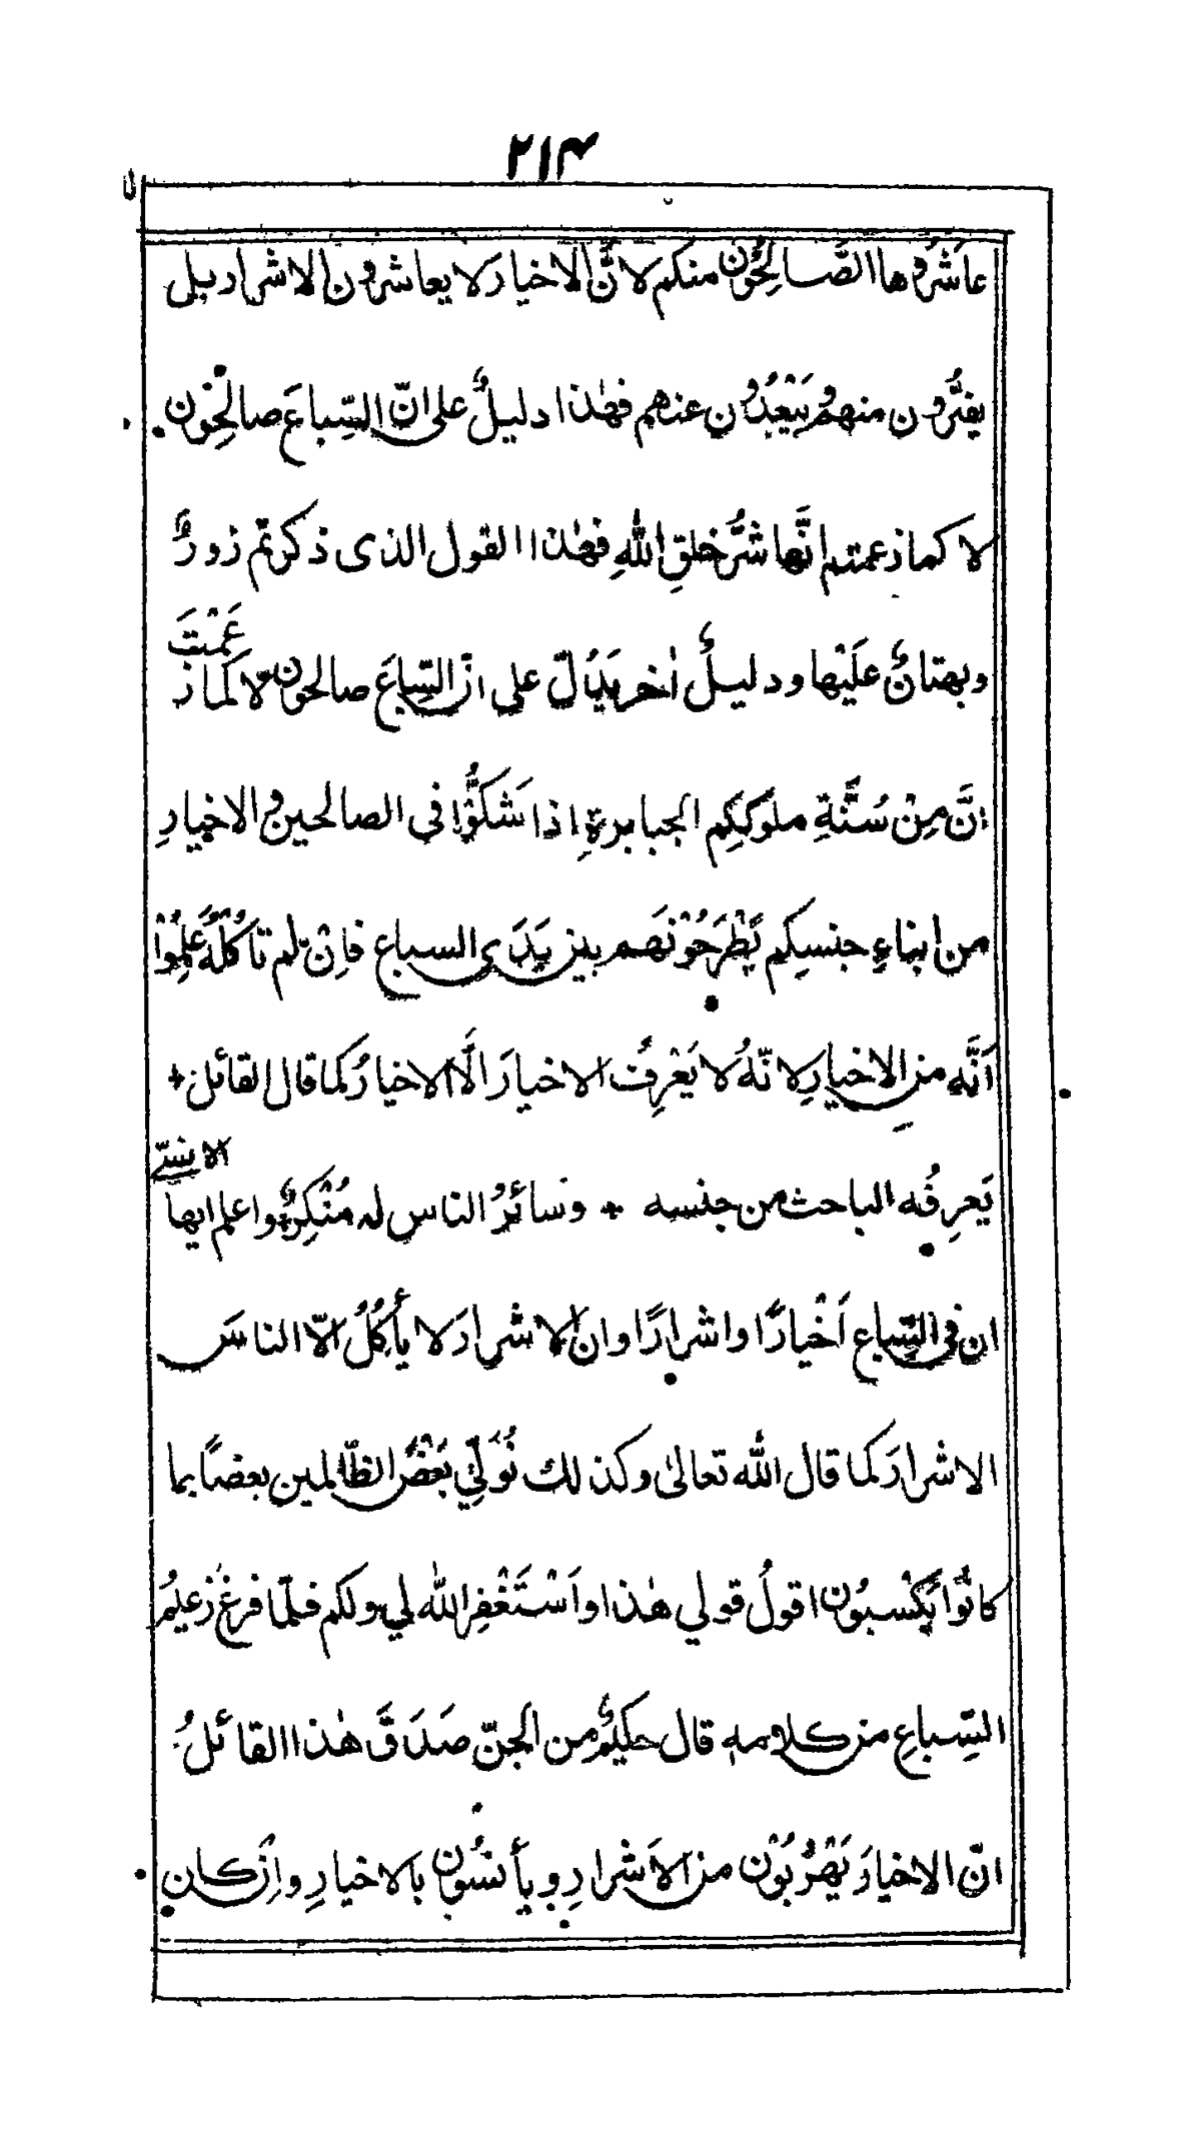 ٢١٤
عاشَرُوها الصَّالِحُون منكم لانَّ الاخيارَ لا يعاشرون الاشرار بل
يفرُّون منهم ويَبْعُدُون عنهم فهٰذا دليلٌ على انّ السِّباعَ صالحُون
لا كما زعمتم انَّها شرُّ خلقِ اللّٰهِ فهٰذا القول الذى ذكرتم زورٌ
وبهتانٌ علَيْها ودليلٌ اٰخر يَدُلّ على انّ السِّباعَ صالحون لا كما زعَمْتَ
انَّ مِنْ سُنَّةِ ملوكِكِم الجبابرةِ اذا شَكُّوْا فى الصالحين والاخيارِ
من ابناءِ جنسِكم يَطْرَحُوْنَهم بين يَدَىِ السباع فاِنْ لم تأكُلْهُ عَلِمُوْا
اَنَّه من الاخيارِ لانّهُ لا يَعْرِفُ الاخيارَ اِلَّا الاخيارُ كما قال القائل +
يَعرِفُه الباحث من جنسه + وسائرُ الناس له مُنْكِرٌ واعلم ايها الانسىّ
ان فى السِّباع اَخْيارًا واشرارًا وان الاشرارَ لا يأكُلُ الّا الناسَ
الاشرارَ كما قال اللّٰه تعالىٰ وكذلك نُوَلِّيْ بَعْضَ الظّالمين بعضًا بما
كانُوْا يَكْسِبُون اقولُ قولي هٰذا واَسْتَغْفِرُ اللّٰه لي ولكم فلمّا فرغَ زعيمُ
السِّباعِ من كلامه قال حكيمٌ من الجنّ صَدَقَ هٰذا القائلُ
انّ الاخيارَ يَهْرُبُوْن من الاَشرارِ ويأنسُون بالاخيارِ واِنْ كان